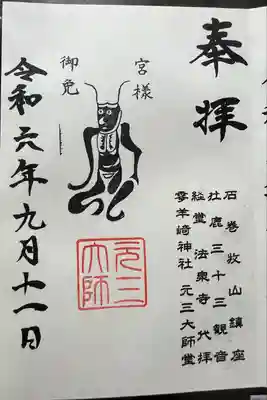 奉拝
石巻牧山鎮座
牡鹿三十三観音
総霊 法泉寺代拝
零羊崎神社 元三大師堂
宮様
御免
元三大師
令和六年九月十一日